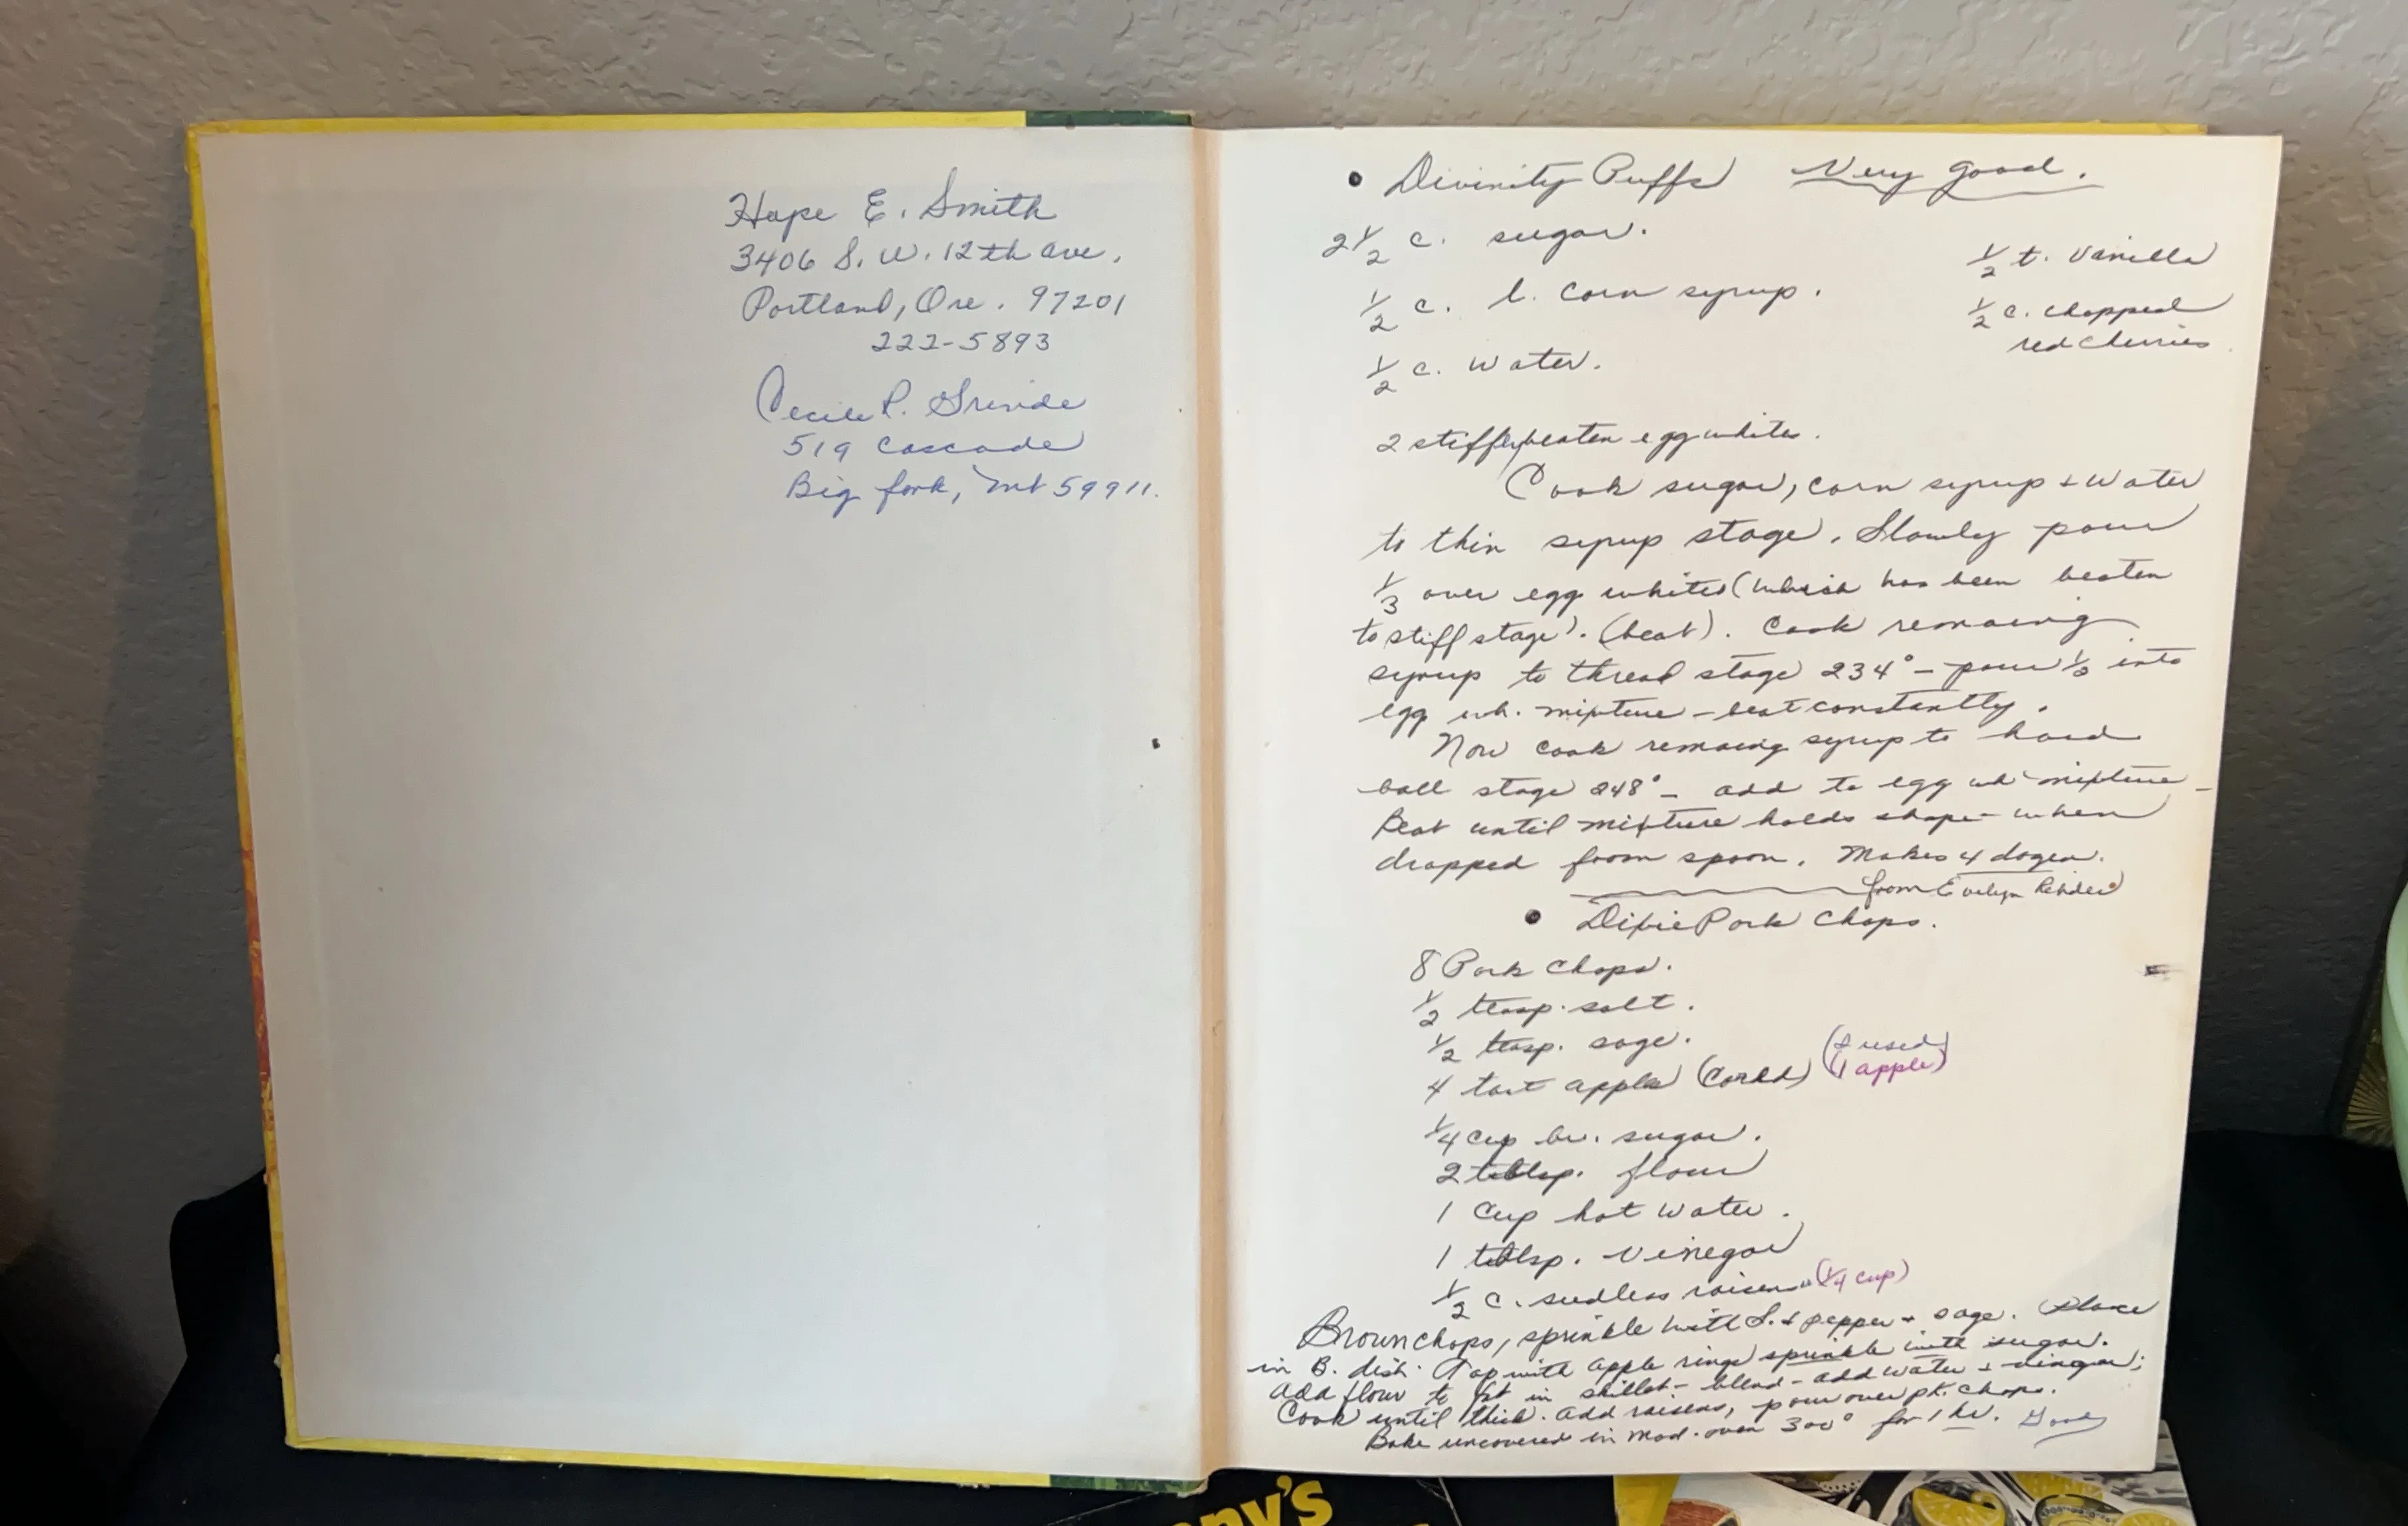 Hope E. Smith
3406 S. W. 12th Ave.
Portland, Ore. 97201
222-5893
Cecile P. Grinde
519 Cascade
Big fork, Mt 59911.
• Divinity Puffs Very good.
2 1/2 c. sugar.
1/2 t. Vanilla
1/2 c. l. corn syrup.
1/2 c. chopped
red cherries
1/2 c. water.
2 stiffly beaten egg whites.
Cook sugar, corn syrup + water
to thin syrup stage. Slowly pour
1/3 over egg whites (which has been beaten
to stiff stage). (beat). Cook remaing
syrup to thread stage 234° – pour 1/2 into
egg wh. mixture – beat constantly.
Now cook remaing syrup to hard
ball stage 248° – add to egg wh mixture –
Beat until mixture holds shape when
dropped from spoon. Makes 4 dozen.
from Evelyn
• Dixie Pork Chops.
8 Pork Chops.
1/2 teasp. salt.
1/2 teasp. sage.
(I used
4 tart apples (cored) (1 apple)
1/4 cup br. sugar.
2 tablsp. flour
1 cup hot water.
1 tablsp. vinegar
1/2 c. seedless raisens (1/4 cup)
Brown chops, sprinkle with S. + pepper + sage. Place
in B. dish. Top with apple rings sprinkle with sugar.
Add flour to fat in skillet – blend – add water + vinegar;
Cook until thick. Add raisens, pour over pk. chops.
Bake uncovered in mod. oven 300° for 1 hr. Good
ny's